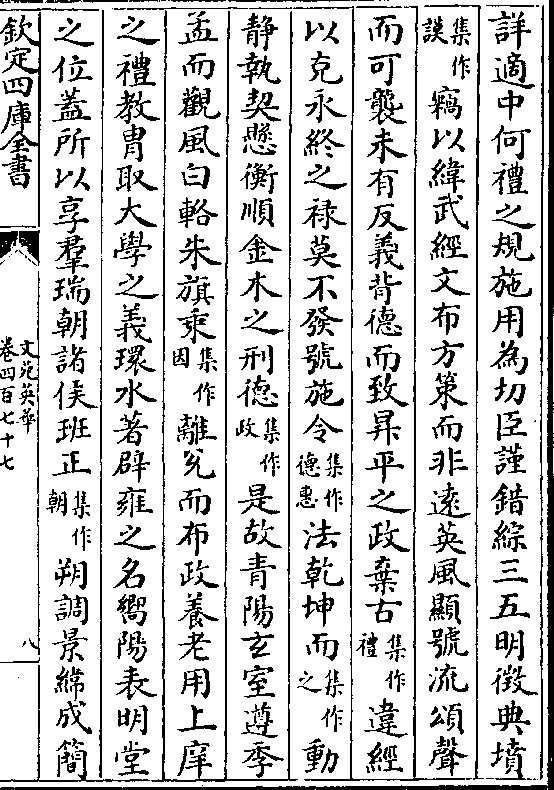 詳適中何禮之規施用為切臣謹錯綜三五明徵典墳
集作談竊以緯武經文布方策而非遠英風顯號流頌聲
而可襲未有反義背德而致昇平之政棄古集作禮違經
以克永終之祿莫不發號施令集作德惠法乾坤而集作之動
静執契懸衡順金木之刑德集作政是故青陽玄室遵季
孟而觀風白輅朱旗乘集作因離兊而布政養老用上庠
之禮教胄取大學之義環水著辟雍之名嚮陽表明堂
之位蓋所以享羣瑞朝諸侯班正集作朝朔調景緯成簡
欽定四庫全書
文苑英華
卷四百七十七
八